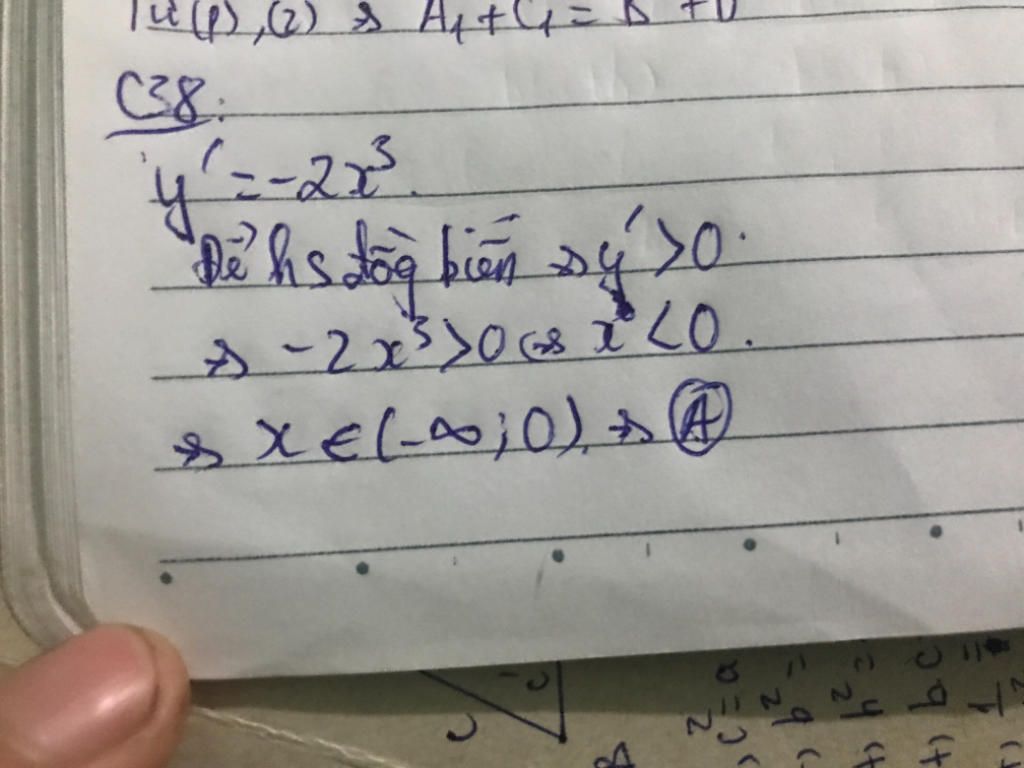 Từ (1), (2) => A₁ + C₁ = B + D
C38:
y' = -2x³.
Để hs đồg biến => y' > 0.
=> -2x³ > 0 <=> x < 0.
=> x ∈ (-∞; 0). => A